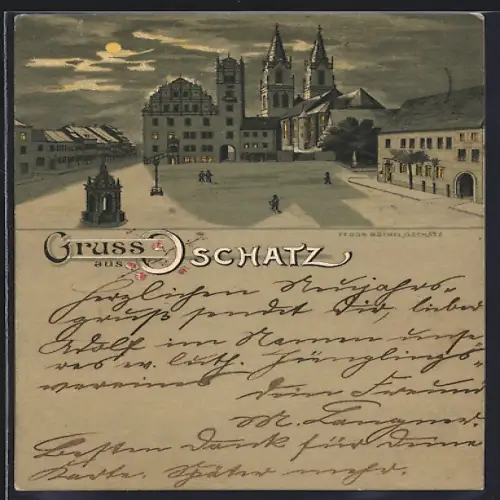 Gruss
aus
OSCHATZ
Herzlichen Neujahrs-
gruß sendet Dir, lieber
Adolf im Namen unse-
res ev. luth. Jünglings-
vereines dein Freund
M. Langner.
Besten Dank für deine
Karte. Später mehr.